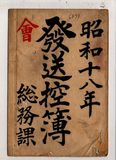 昭和十八年
會
發送控簿
総務課